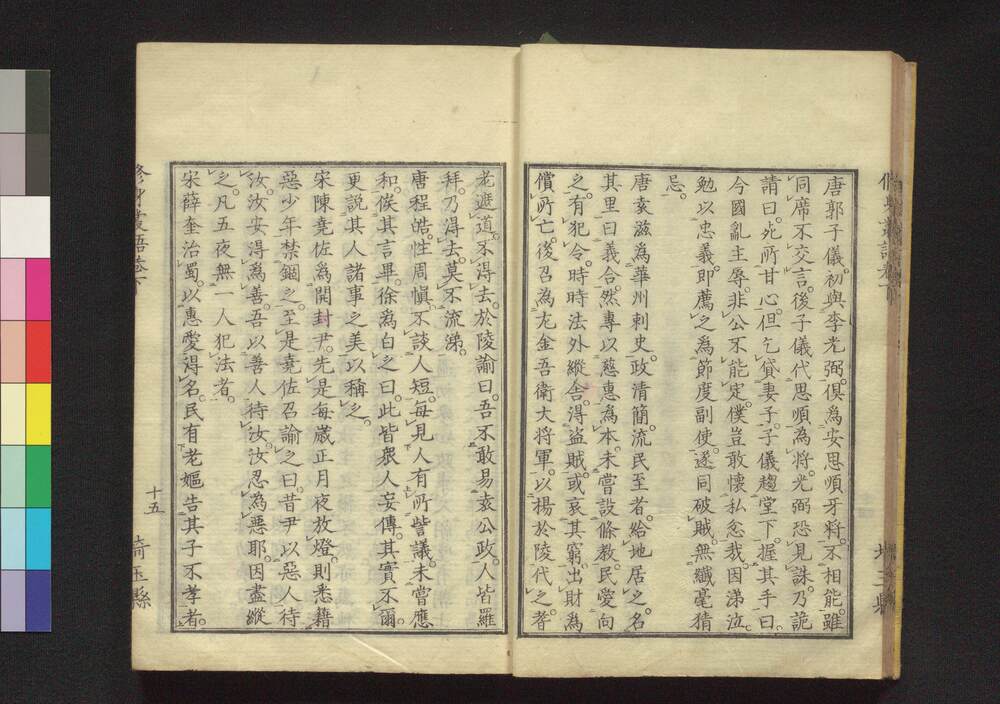 唐郭子儀。初與李光弼。俱為安思順牙將。不相能。雖
同席不交言。後子儀代思順為將。光弼恐見誅。乃詭
請曰。死所甘心。但乞貸妻子。子儀趨堂下。握其手曰。
今國亂主辱。非公不能定。僕豈敢懷私忿哉。因涕泣。
勉以忠義。即薦之為節度副使。遂同破賊。無纖毫猜
忌。
唐袁滋為華州刺史。政清簡。流民至者。給地居之。名
其里曰義合。然專以慈惠為本。未嘗設條教。民愛向
之。有犯令。時時法外縱舍。得盜賊。或哀其窮。出財為
償所亡。後召為左金吾衛大将軍。以楊於陵代之。耆
老遮道。不得去。於陵諭曰。吾不敢易袁公政。人皆羅
拜。乃得去。莫不流涕。
唐程皓。性周愼。不談人短。每見人有所訾議。未嘗應
和。俟其言畢。徐為白之曰。此皆衆人妄傳。其實不爾。
更説其人諸事之美以稱之。
宋陳堯佐為開封尹。先是每歳正月夜放燈。則悉籍
惡少年禁錮之。至是堯佐召諭之曰。昔尹以惡人待
汝。汝安得為善。吾以善人待汝。汝忍為惡耶。因盡縱
之。凡五夜無一人犯法者。
宋薛奎治蜀。以惠愛得名。民有老嫗告其子不孝者。
十五
埼玉縣